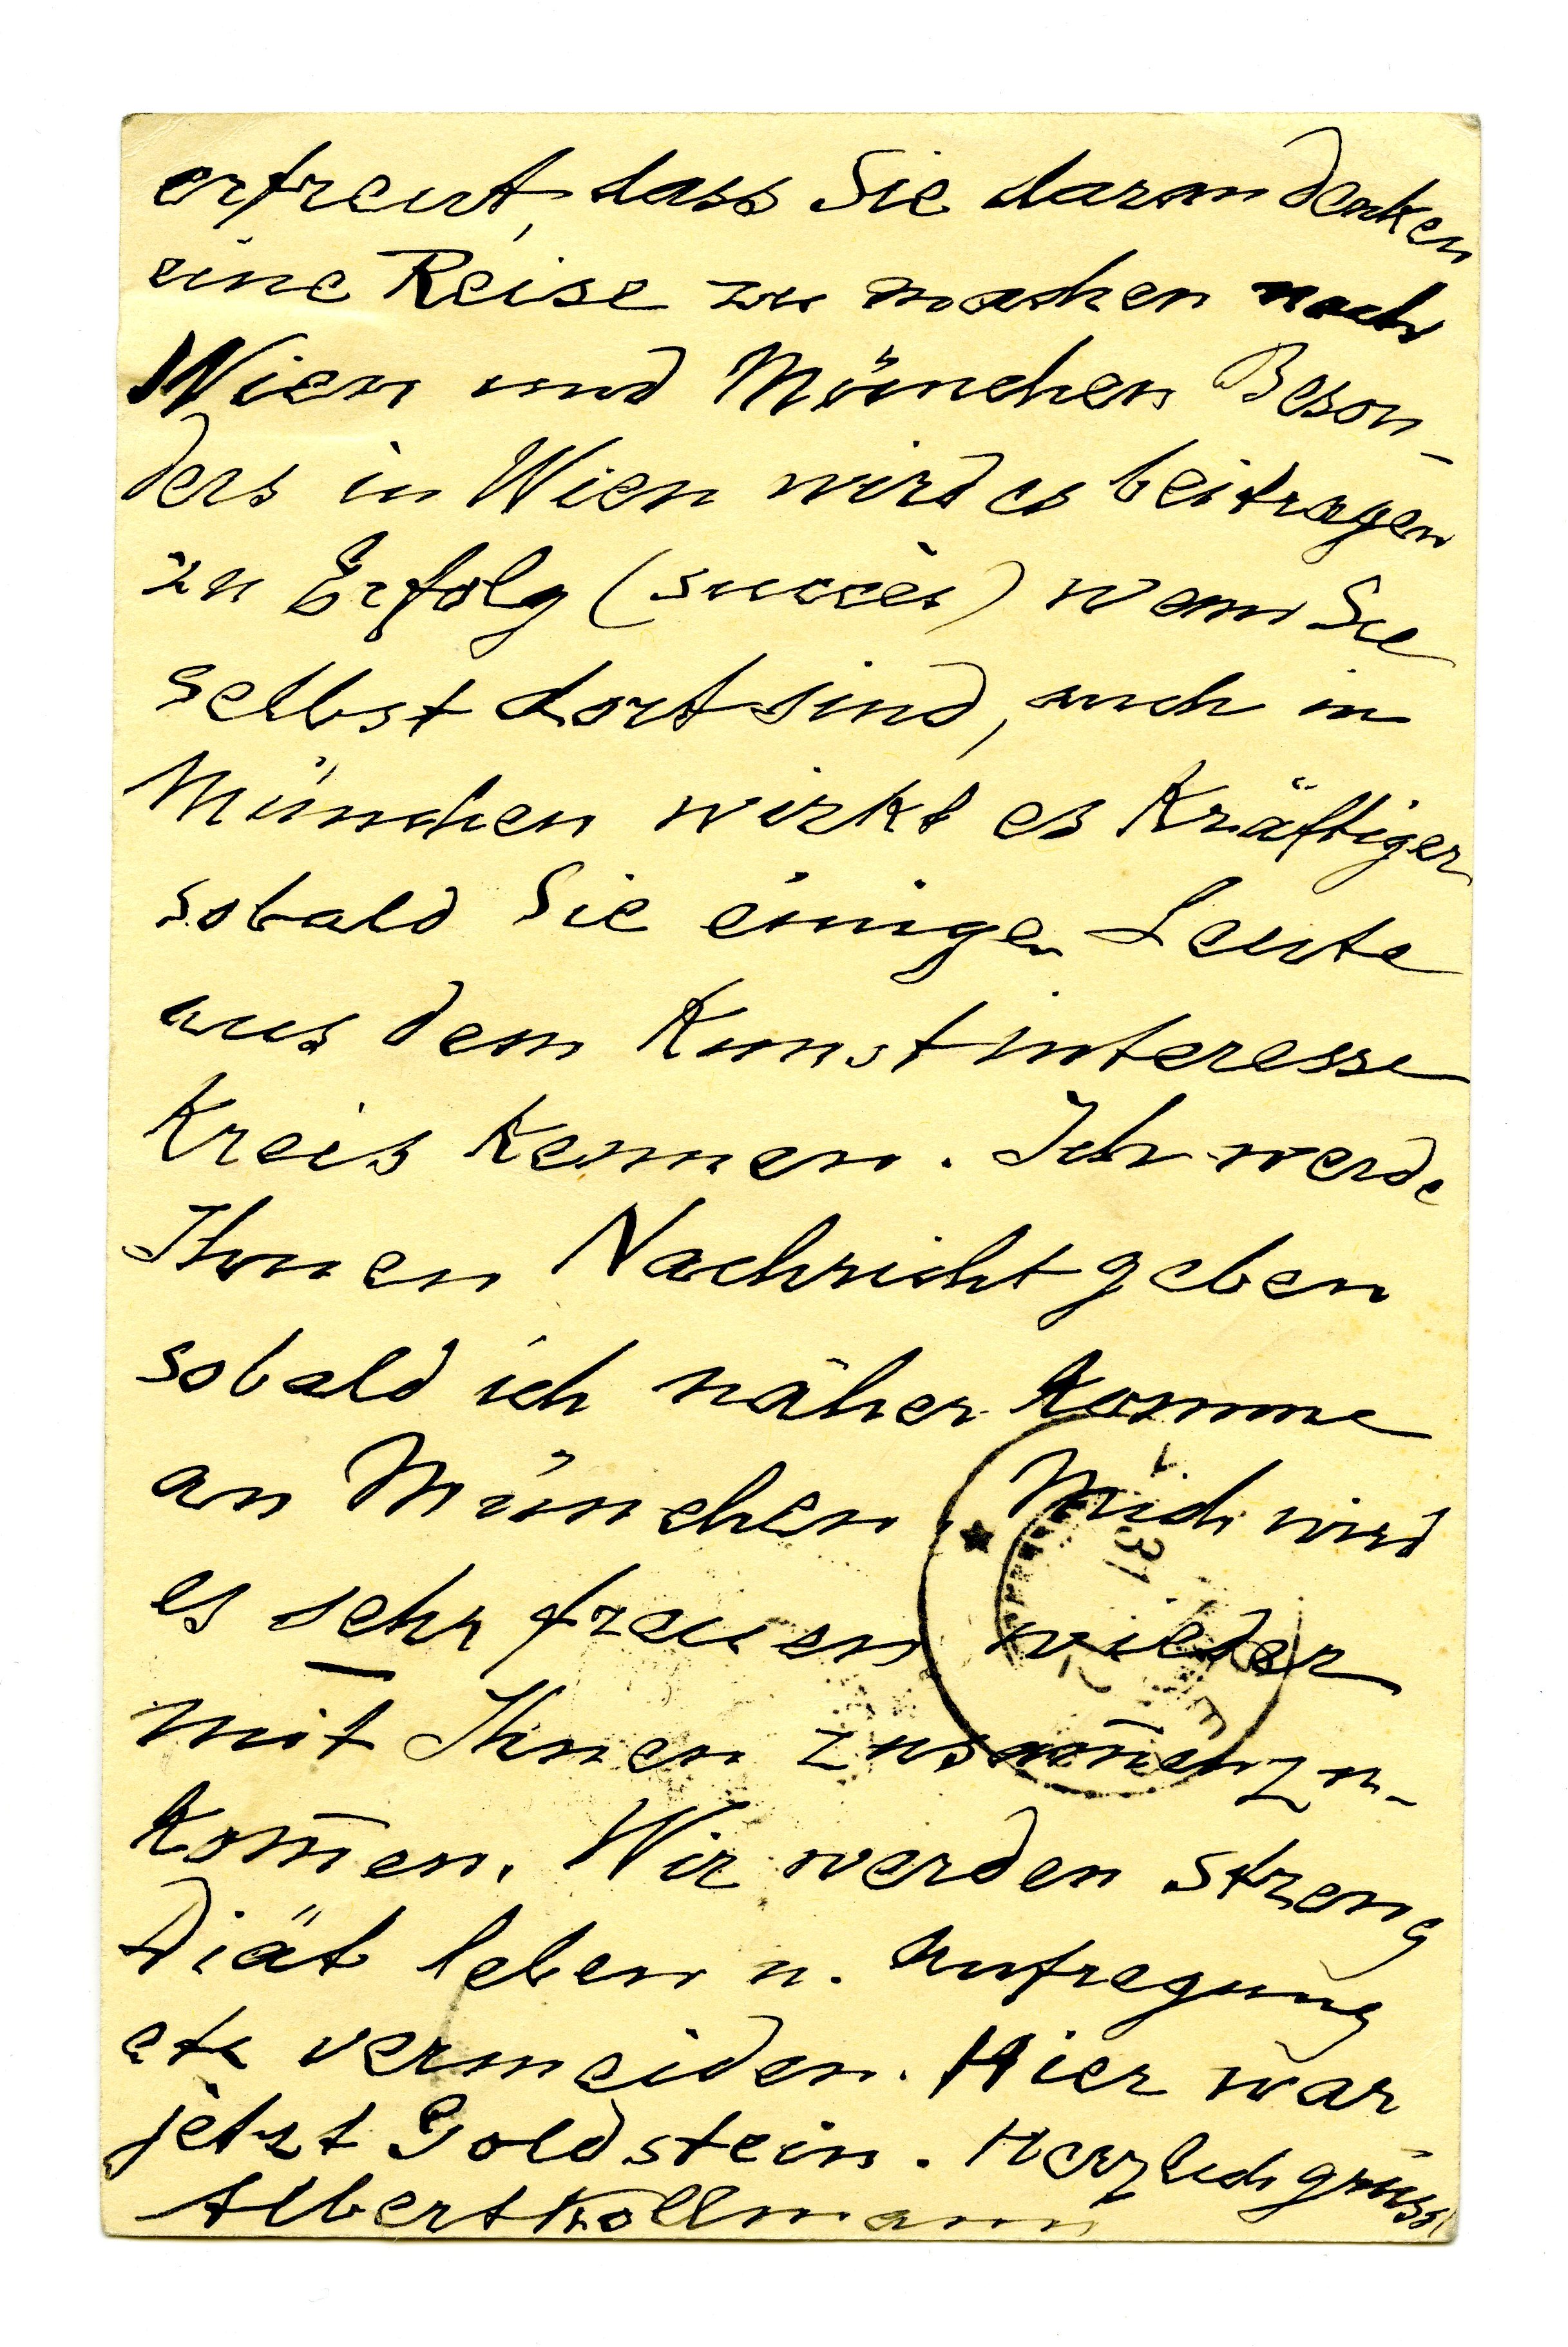 erfreut, dass Sie daran denken
eine Reise zu machen nach
Wien und München Beson-
ders in Wien wird es beitragen
zu Erfolg (succès) wenn Sie
selbst dort sind, auch in
München wirkt es Kräftiger
sobald Sie einigen Leute
aus dem Kunstinteresse
Kreis Kennen. Ich werde
Ihnen Nachricht geben
sobald ich näher Komme
an München. Mich wird
es sehr freuen wieder
mit Ihnen zusam̄enzu-
Kom̄en. Wir werden streng
Diät leben u. Aufregung
etc vermeiden. Hier war
jetzt Goldstein. Herzlich grüsst
Albert Kollmann
31